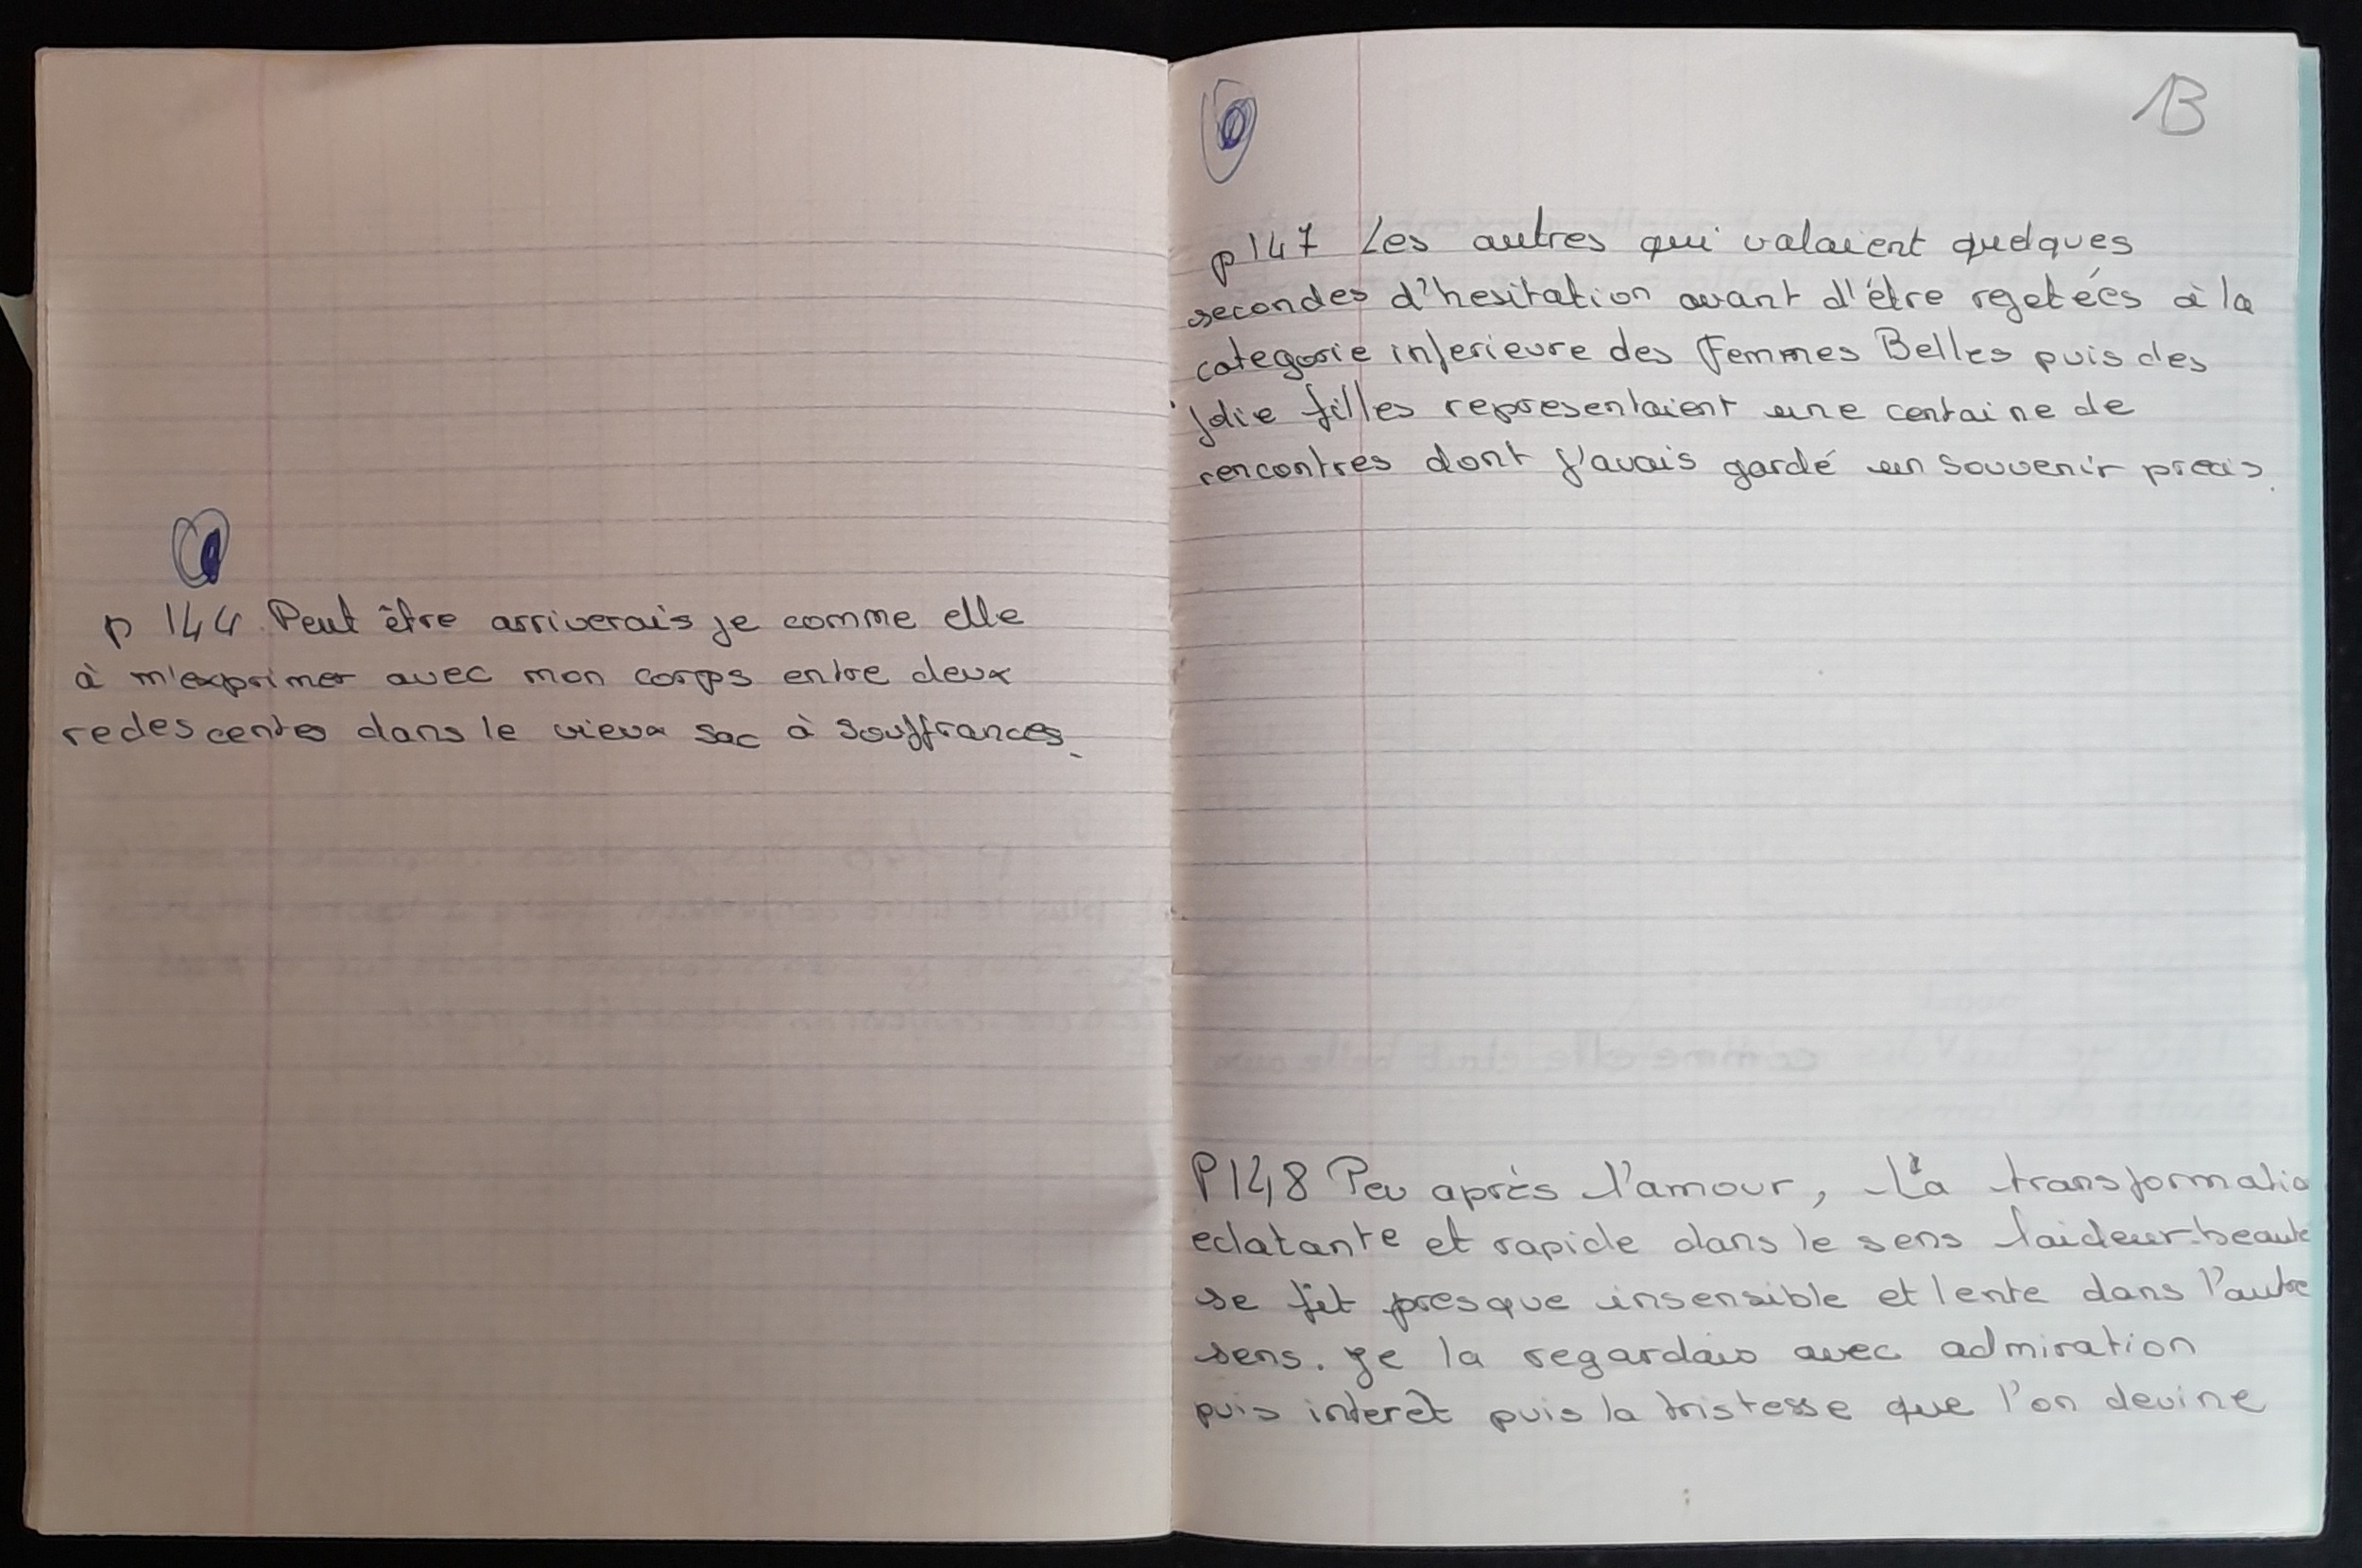 p 144 Peut être arriverais je comme elle
à m'exprimer avec mon corps entre deux
redescentes dans le vieux sac à souffrances.
13
p 147 Les autres qui valaient quelques
secondes d'hesitation avant d'être rejetées à la
categorie inferieure des Femmes Belles puis des
Jolie filles representaient une centaine de
rencontres dont j'avais gardé un souvenir precis.
P 148 Peu après l'amour, La transformatio
eclatante et rapide dans le sens laideur-beauté
se fit presque insensible et lente dans l'autre
sens. Je la regardais avec admiration
puis interêt puis la tristesse que l'on devine